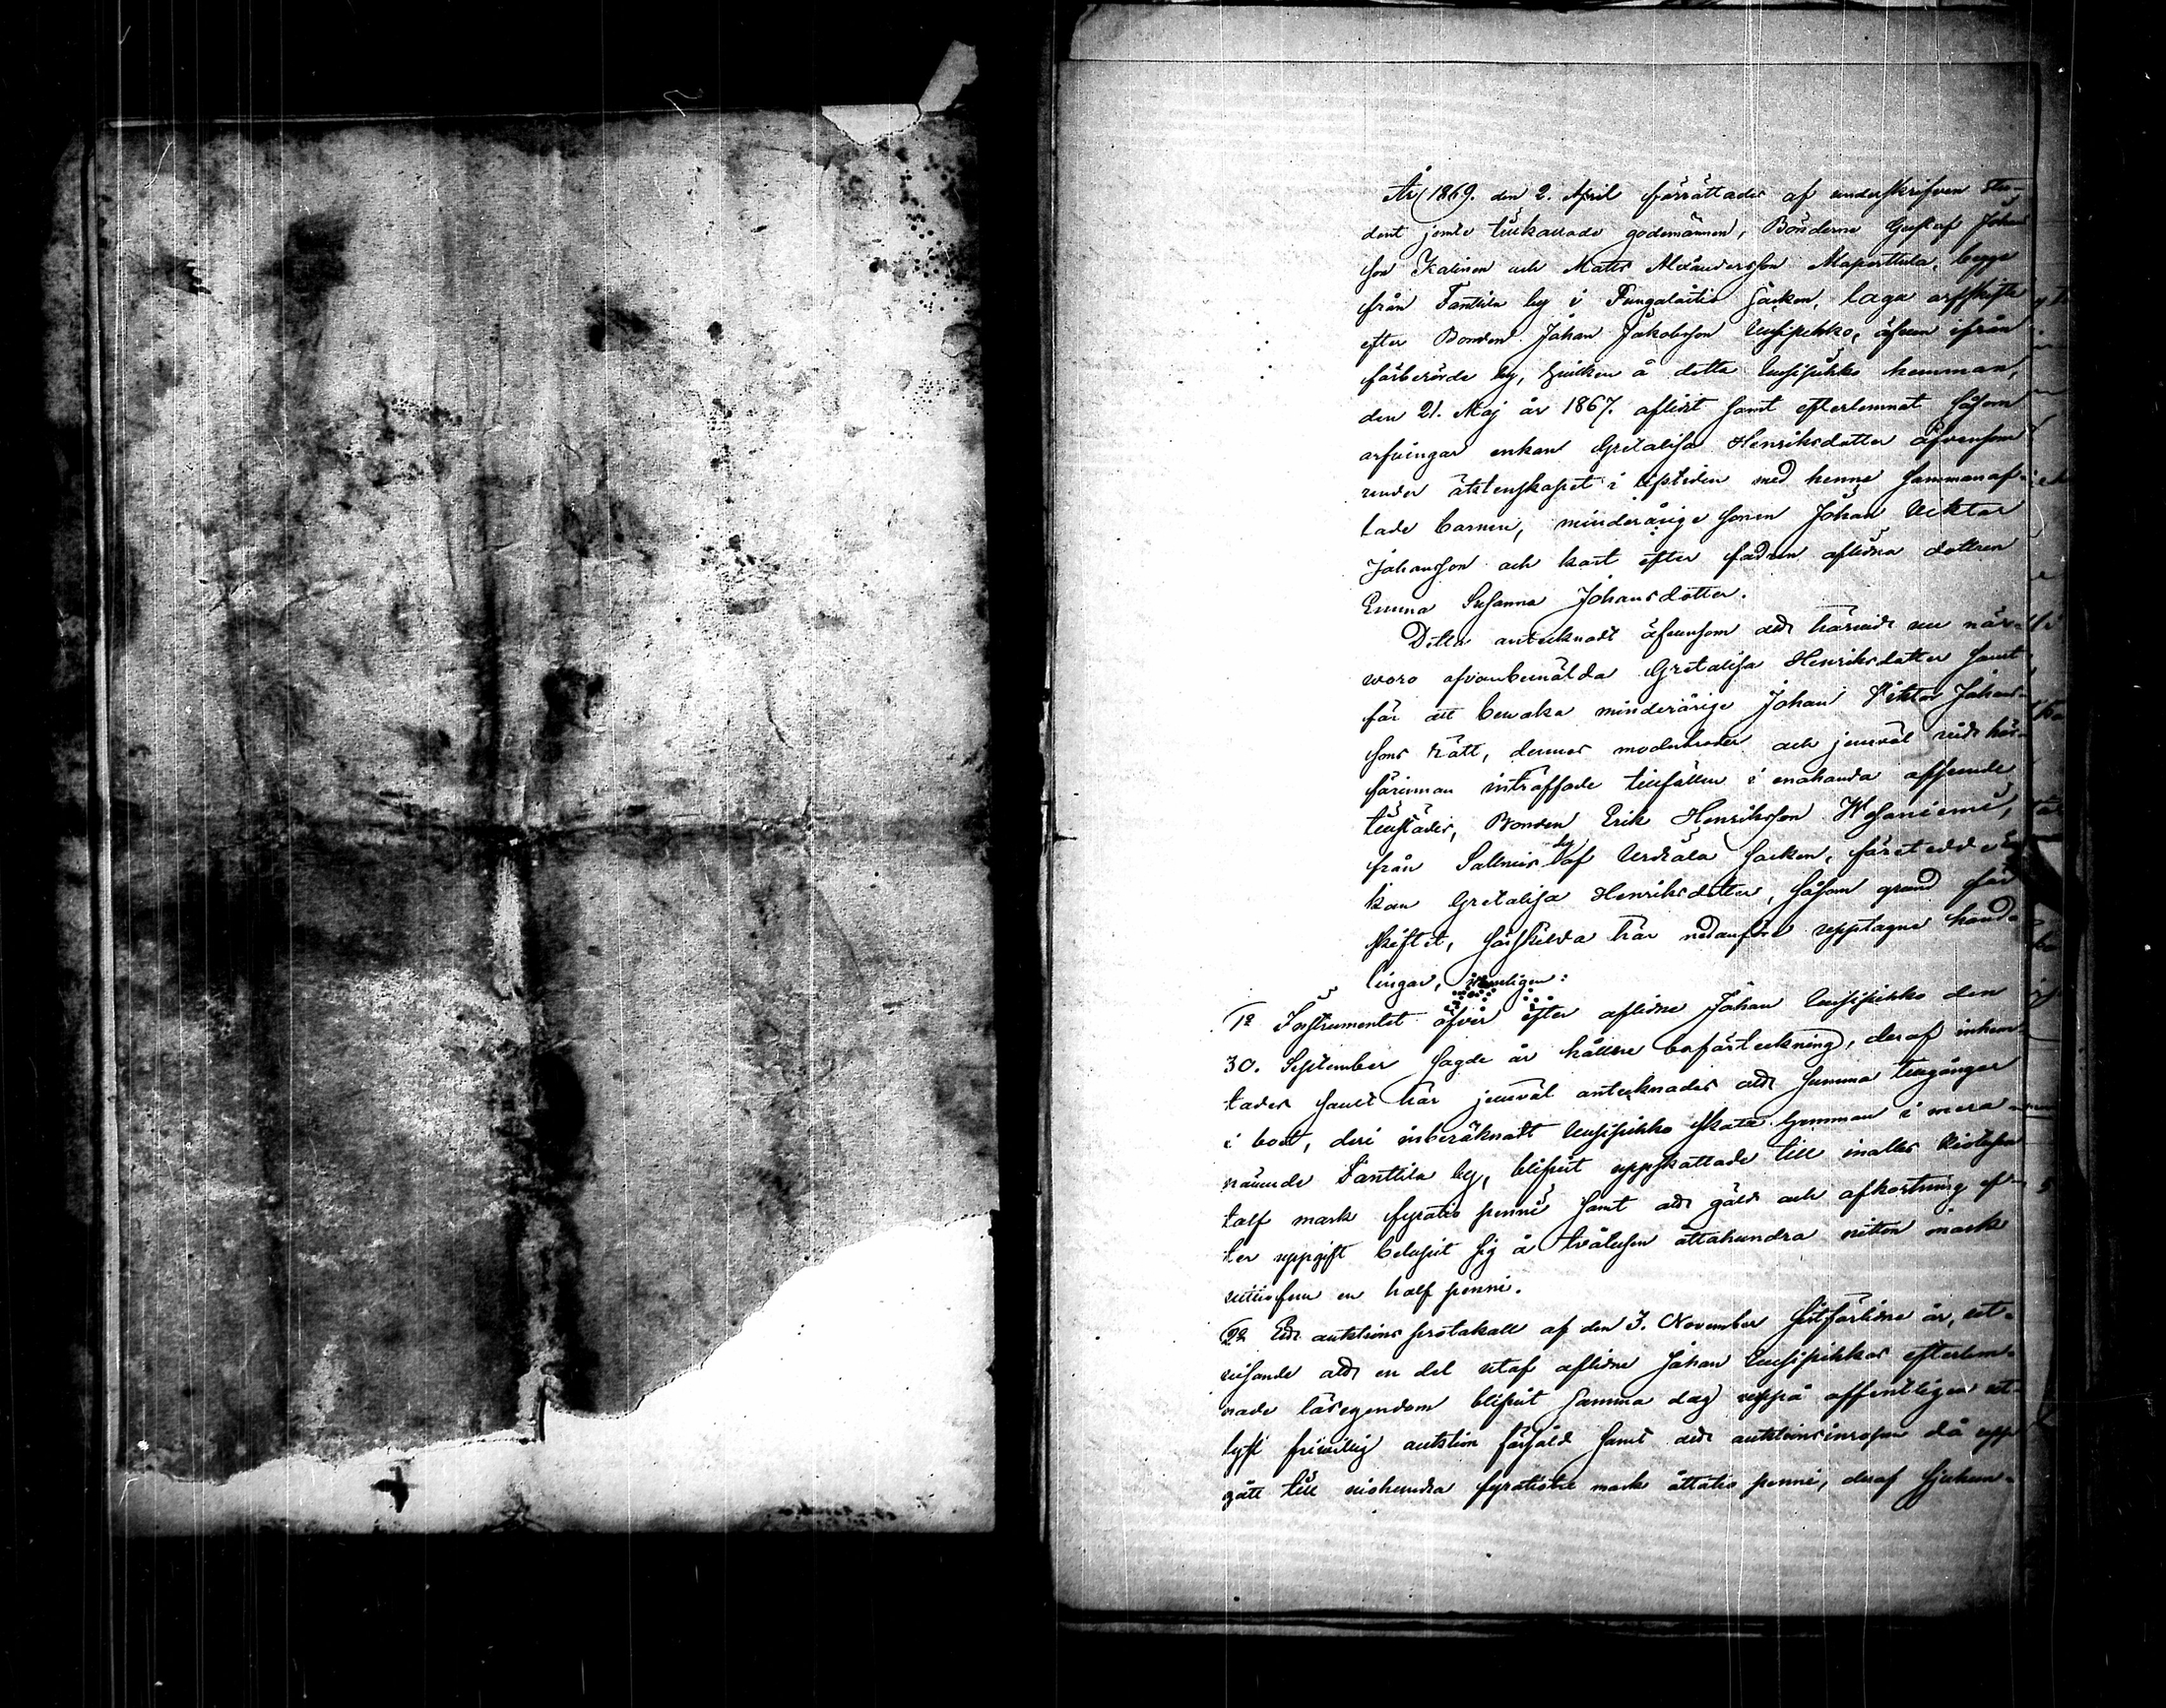 År 1869. den 2. April förrättades af underskrifven Stu-
dent jemte tillkallade godemännen, Bönderne Gustaf Johans
son Kalinen och Matts Alexandersson Maperttula, begge
från Tanttila by i Tungalaitio Socken, laga arfskifte
efter Bonden Johan Jakobsson Uusipihko, äfven ifrån
förberörde by, hvilken å detta Uusipihko hemman,
den 21. Maj år 1867. aflidit samt efterlemnat såsom
arfvingar enkan Gretalisa Henriksdotter äfvensom
under äktenskapet i lifstiden med henne sammanaf-
lade barnen, minderårige sonen Johan Viktor
Johansson och kort efter fadren aflidna dottren
Emma Susanna Johansdotter.
Detta antecknadt äfvensom att härvid nu när-
voro ofvanbemälda Gretalisa Henriksdotter samt
för att bevaka minderårige Johan Viktor Johans-
sons rätt, dennes moderbroder och jemväl vid här-
förinnan inträffade tillfällen i enahanda afseende
tillstädes, Bonden Erik Henriksson Wesaniemi,
från Salmis by af Urdiala Socken, företedde En-
kan Gretalisa Henriksdotter, såsom grund för
skiftet, särskilda här nedanföre upptagne hand-
lingar, nemligen:
1º Instrumentet öfver efter aflidne Johan Uusipihko den
30. September sagde år hållne boförteckning, deraf inhem-
tades samt här jemväl antecknades att summa tillgångar
i boet, deri inberäknadt Uusipihko skatte hemman i mera-
nämnde Tanttila by, blifvit uppskattade till inalles niotusen
talf mark fyratio penni samt att gäld och afkortning ef-
ter uppgift belupit sig å tvåtusen åttahundra nitton mark
nittiofem en half penni.
2º Ett auktions protokoll af den 3. November sistförlidne år, ut-
visande att en del utaf aflidne Johan Uusipihkos efterlem-
nade lösegendom blifvit samma dag uppå offentligen ut-
lyst frivillig auktion försåld samt att auktionsinropen då upp
gått till niohundra fyratiotre mark åttatio penni, deraf sjuhun-